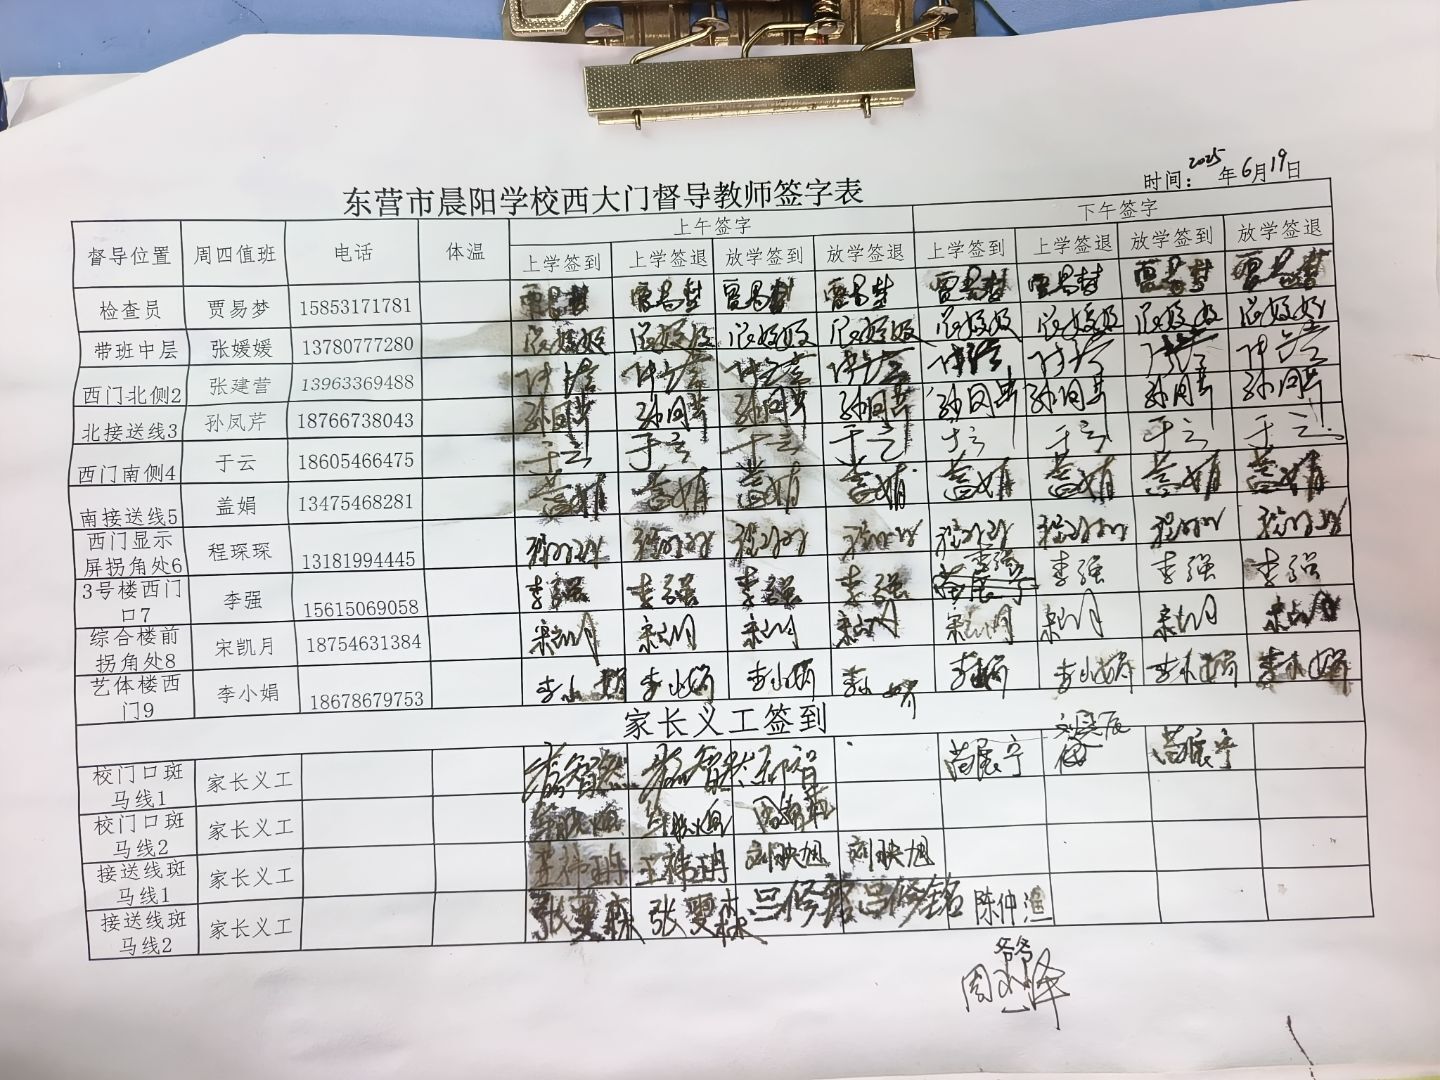 时间：2025年6月19日
东营市晨阳学校西大门督导教师签字表
督导位置 周四值班 电话 体温 上午签字 下午签字
上学签到 上学签退 放学签到 放学签退 上学签到 上学签退 放学签到 放学签退
检查员 贾易梦 15853171781 贾易梦 贾易梦 贾易梦 贾易梦 贾易梦 贾易梦 贾易梦 贾易梦
带班中层 张媛媛 13780777280 张媛媛 张媛媛 张媛媛 张媛媛 张媛媛 张媛媛 张媛媛 张媛媛
西门北侧2 张建营 13963369488
北接送线3 孙凤芹 18766738043 孙凤芹 孙凤芹 孙凤芹 孙凤芹 孙凤芹 孙凤芹 孙凤芹 孙凤芹
西门南侧4 于云 18605466475 于云 于云 于云 于云 于云 于云 于云 于云
南接送线5 盖娟 13475468281 盖娟 盖娟 盖娟 盖娟 盖娟 盖娟 盖娟 盖娟
西门显示
屏拐角处6 程琛琛 13181994445
3号楼西门
口7 李强 15615069058 李强 李强 李强 李强 李强 李强 李强 李强
综合楼前
拐角处8 宋凯月 18754631384 宋凯月 宋凯月 宋凯月 宋凯月 宋凯月 宋凯月 宋凯月 宋凯月
艺体楼西
门9 李小娟 18678679753 李小娟 李小娟 李小娟 李小娟 李小娟 李小娟 李小娟 李小娟
家长义工签到
校门口斑
马线1 家长义工
校门口斑
马线2 家长义工
接送线斑
马线1 家长义工 王伟珃 王伟珃 刘映旭 刘映旭
接送线斑
马线2 家长义工 张雯森 张雯森 吕修铭 吕修铭 陈仲渔
爷爷